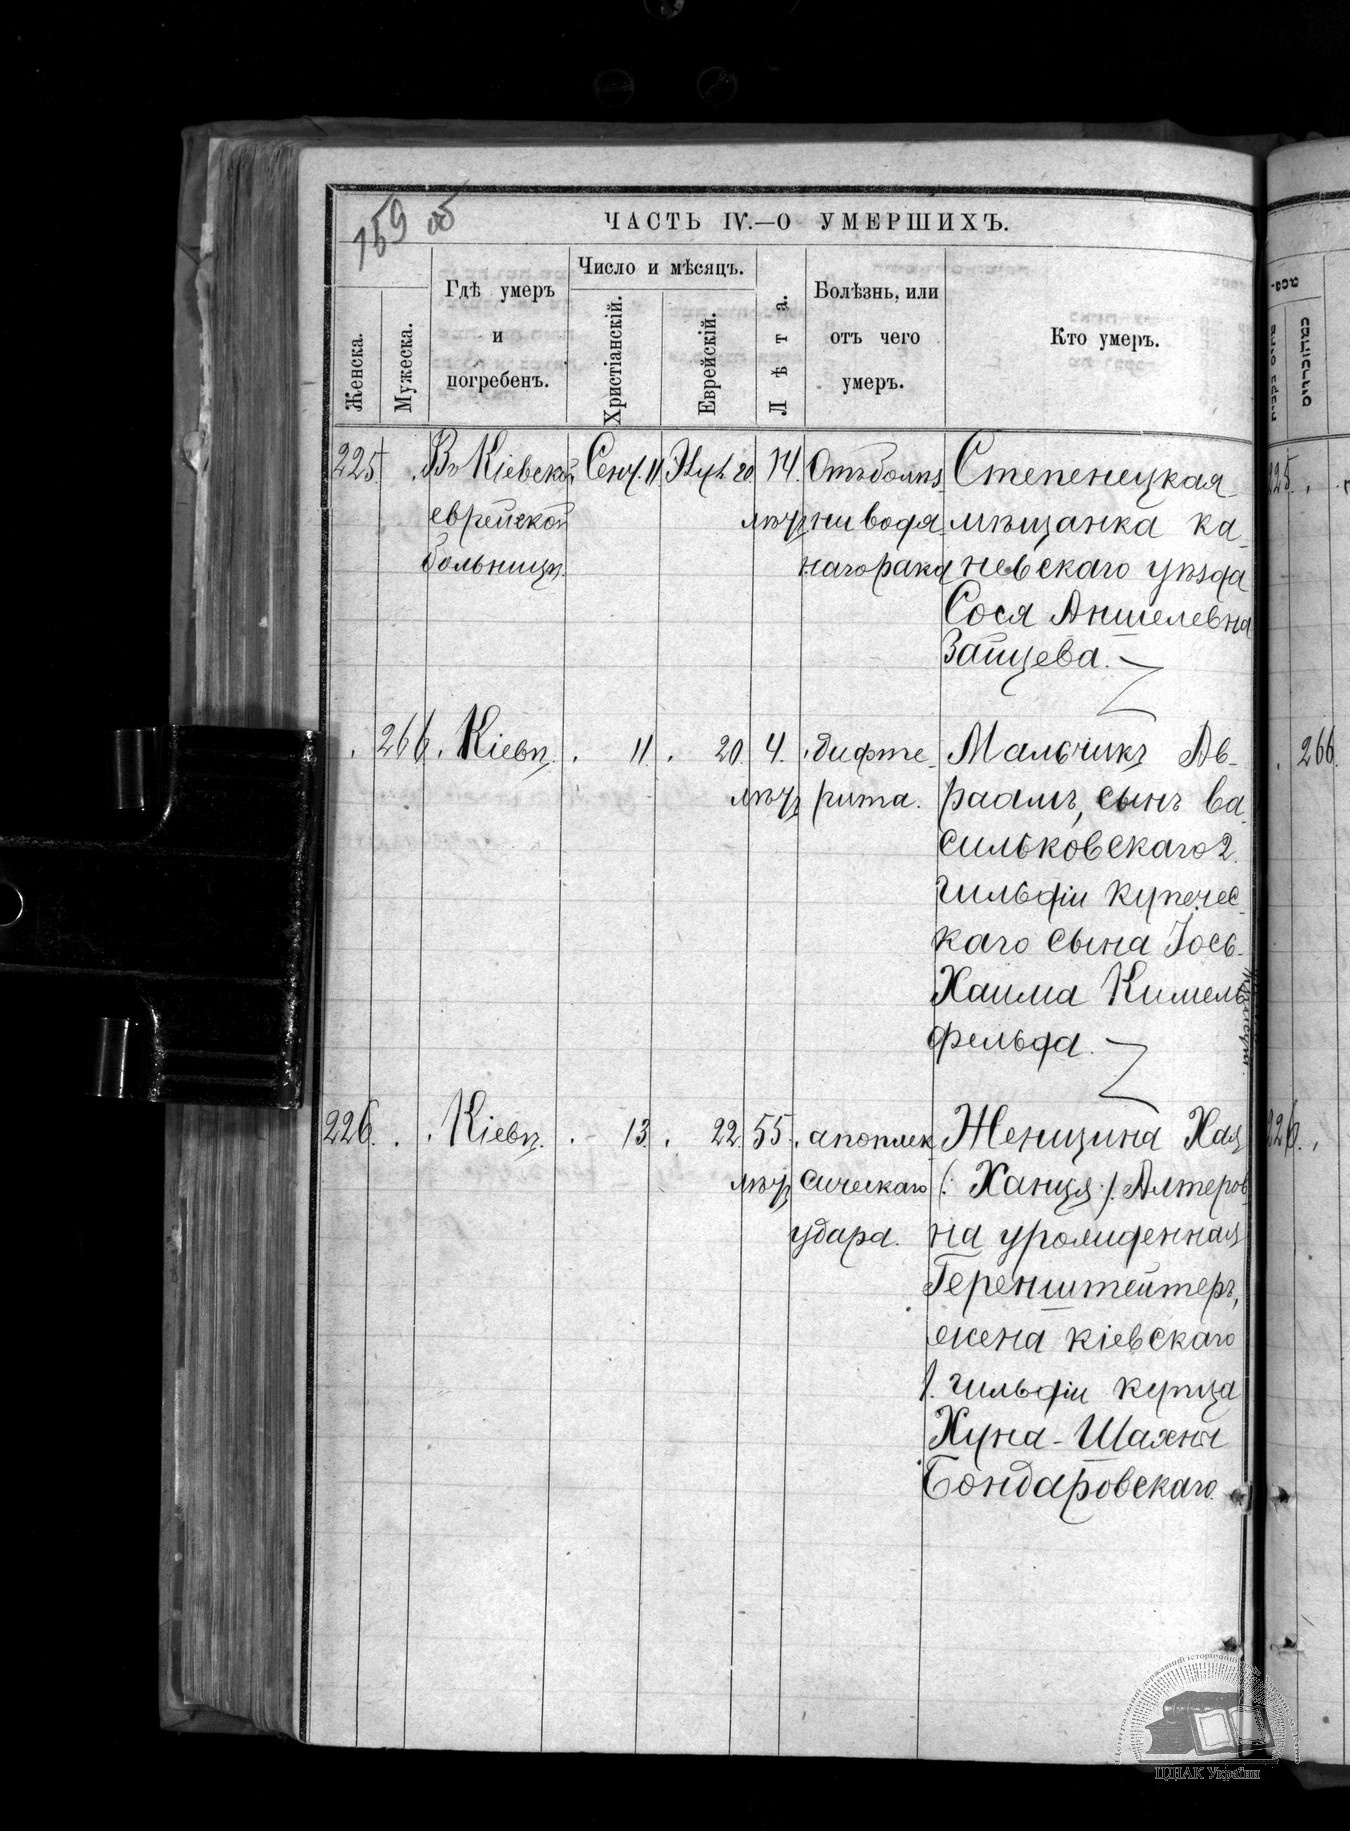 159 об
ЧАСТЬ IV.—О УМЕРШИХЪ.
Женска.
Мужеска.
Гдѣ умеръ
и
погребенъ.
Число и мѣсяцъ.
Христіанскій.
Еврейскій.
Лѣта.
Болѣзнь, или
отъ чего
умеръ.
Кто умеръ.
225. Въ Кіевской
еврейской
больницѣ.
Сент. 11 Элул. 20
14.
лѣтъ
Отъ болѣз-
ни водя-
наго рака
Степенецкая
мѣщанка ка-
невскаго уѣзда
Сося Аншелевна
Зайцева.
266. Кіевѣ. 11. 20. 4.
лѣтъ
дифте-
рита.
Мальчикъ Ав-
раамъ, сынъ ва-
сильковскаго 2.
гильдіи купечес-
каго сына Іось-
Хаима Кимель-
фельда.
226. Кіевѣ. 13. 22. 55.
лѣтъ
апоплек
сическаго
удара.
Женщина Хая
(: Ханця :) Алтеров
на урожденная
Геренштейтеръ,
жена кіевскаго
1. гильдіи купца
Хуна-Шахны
Бондаровскаго.
כסלהוברויס
225.
266.
226.
Центральний державний історичний
ЦНАК України